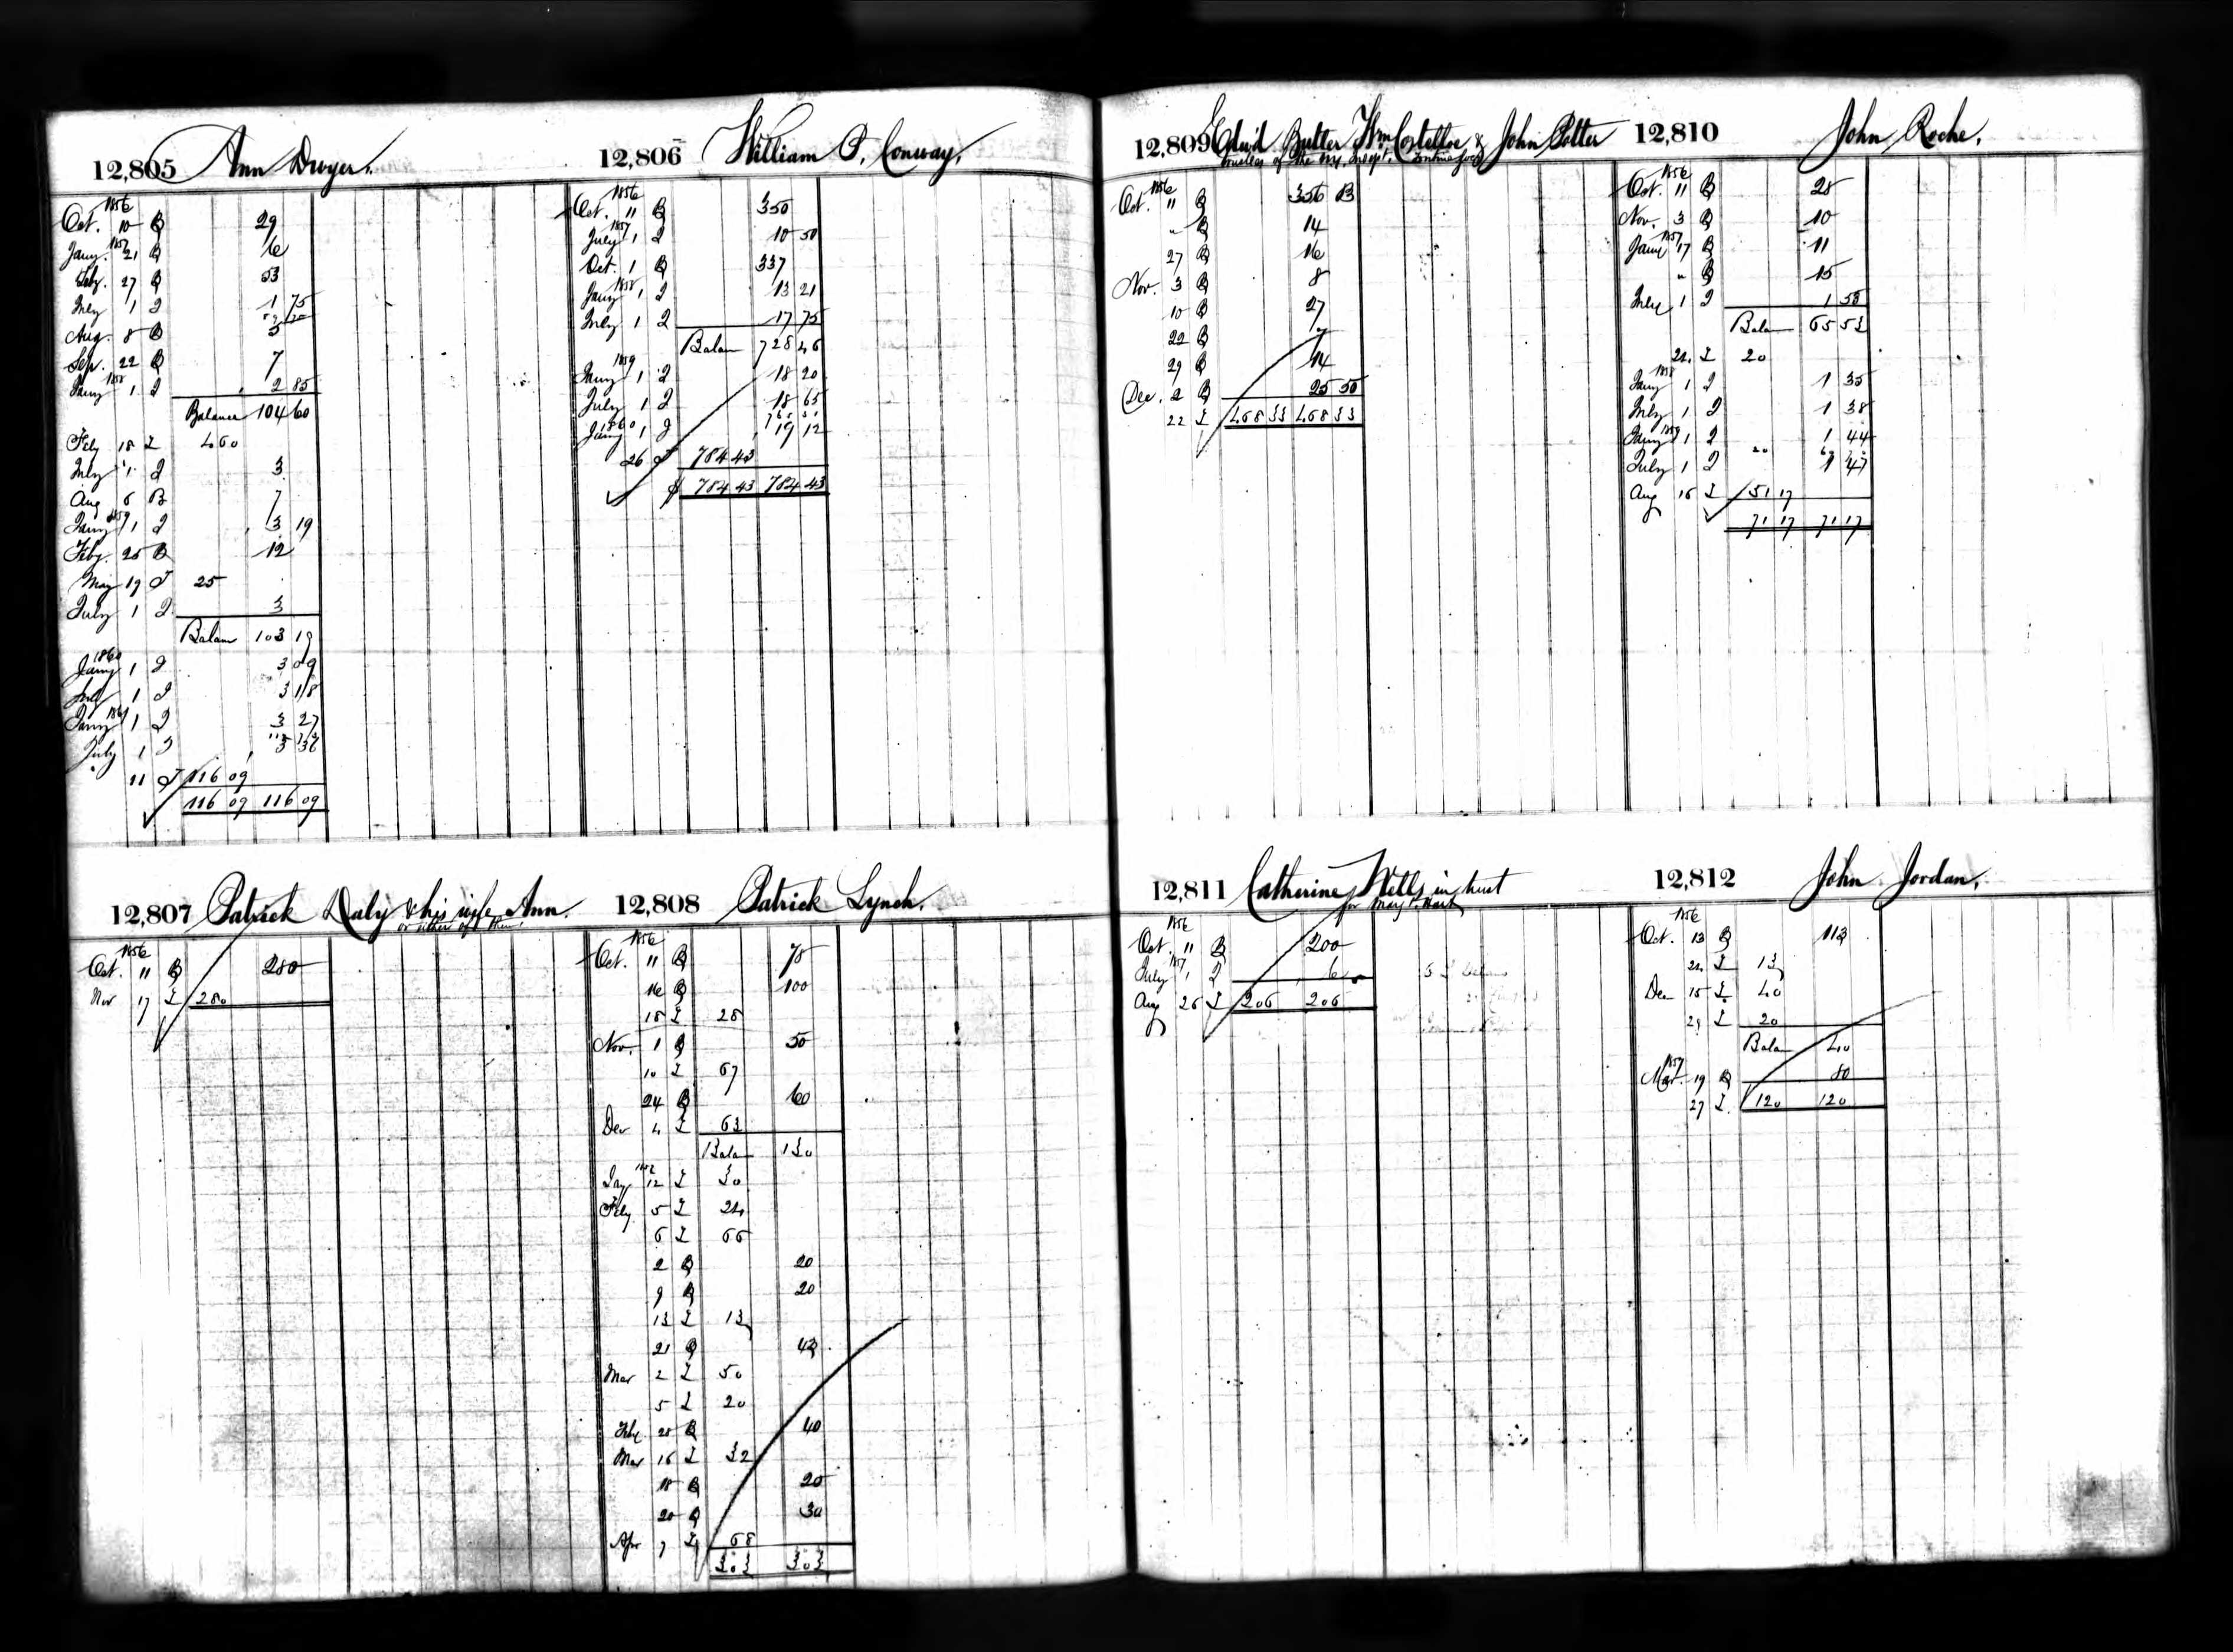 12,805 Ann Dwyer.
1856
Oct. 10 B 29
1857
Jany. 21 B 16
Feby. 27 B 53
July 1 D 1 75
Aug. 8 B 5
Sep. 22 B 7
1858
Jany 1 D 2 85
Balance 104 60
Feby 18 L 4 60
July 1 D 3
Aug 6 B 7
1859
Jany 1 D 3 19
Feby. 25 B 12
May 19 25
July 1 D 3
Balan 103 19
1860
Jany 1 D 3 09
July 1 D 3 18
1861
Jany 1 D 3 27
July 1 D 3 36
11 116 09
116 09 116 09
12,806 William P. Conway.
1856
Oct. 11 B 350
1857
July 1 D 10 50
Oct. 1 B 337
1858
Jany 1 D 13 21
July 1 D 17 75
Balan 728 46
1859
Jany 1 D 18 20
July 1 D 18 65
1860
Jany 1 D 19 12
26 784 43
$ 784 43 784 43
12,807 Patrick Daly & his wife Ann.
or either of them.
1856
Oct. 11 B 280
Nov 17 L 280
12,808 Patrick Lynch.
1856
Oct. 11 B 78
16 B 100
18 L 28
Nov. 1 B 50
10 L 67
24 B 60
Dec 4 L 63
Balan 130
Jany 12 L 30
Feby 5 L 24
6 L 66
2 B 20
9 B 20
13 L 13
21 B 43
Mar 2 L 50
5 L 20
Feby 28 B 40
Mar 16 L 32
18 B 20
20 B 30
Apr 7 L 68
303 303
12,809 Edw'd Butler Wm Costelloe & John Potter
trustees of the
1856
Oct. 11 B 356 83
" B 14
27 B 16
Nov. 3 B 8
10 B 27
22 B 7
29 B 14
Dec. 2 B 25 50
22 L 468 33 468 33
12,810 John Roche.
1856
Oct. 11 B 28
Nov. 3 B 10
1857
Jany 17 B 11
" B 15
July 1 D 1 53
Balan 65 53
24 L 20
1858
Jany 1 D 1 35
July 1 D 1 38
1859
Jany 1 D 1 44
July 1 D 1 47
Aug 16 L 51 17
71 17 71 17
12,811 Catherine Wells in trust
for Mary
1856
Oct. 11 B 200
1857
July 1 D 6
Aug 26 L 206 206
12,812 John Jordan.
1856
Oct. 13 B 113
24 L 13
Dec 15 L 40
29 L 20
Balan 40
1857
Mar. 19 B 80
27 L 120 120